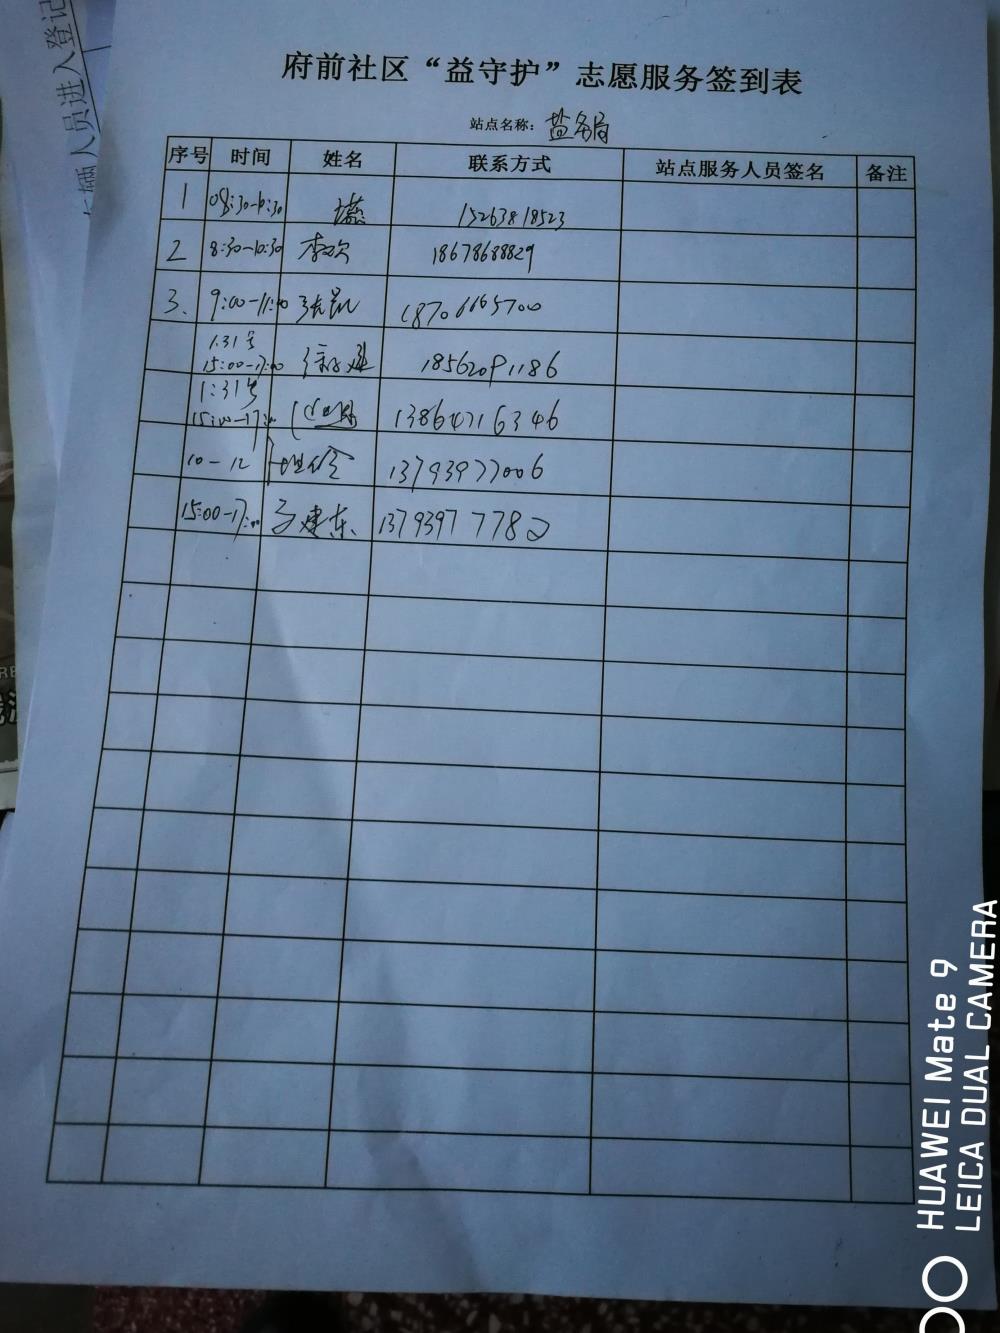 人员进入登记
府前社区“益守护”志愿服务签到表
站点名称：盐务局
序号 时间 姓名 联系方式 站点服务人员签名 备注
1 08:30-10:30 15263818523
2 8:30-10:30 李欢 18678688829
3. 9:00-11:00 18706665700
1.31号
15:00-17:00 18562091186
1:31号
15:00-17:00 13864716346
10-12 13793977006
15:00-17:00 建东 13793977782
HUAWEI Mate 9
LEICA DUAL CAMERA